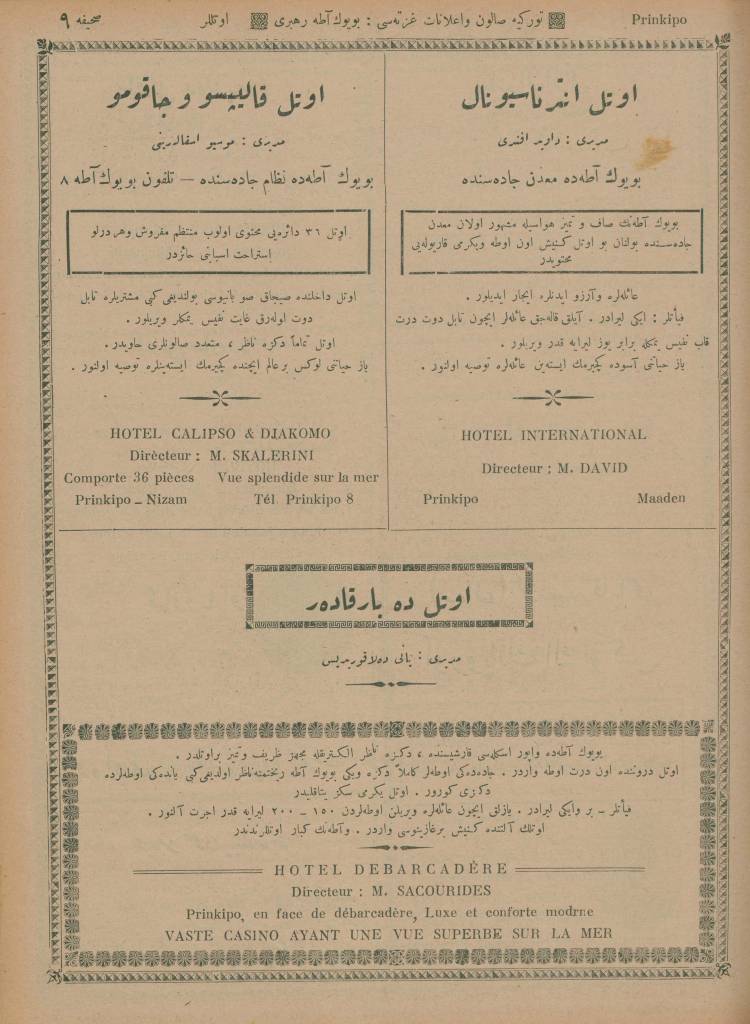 Prinkipo
توركیه صالون واعلانات غزته‌سی : بویوك آطه رهبری
اوتللر
صحیفه ٩
اوتل انترناسیونال
مدیری : داوید افندی
بویوك آطه‌ده معدن جاده‌سنده
بویوك آطه‌نك صاف و تمیز هواسیله مشهور اولان معدن
جاده‌سنده بولنان بو اوتل كنیش اون اوطه ویكرمی قاریوله‌یی
محتویدر
عائله‌لره وآرزو ایدنلره ایجار ایدیلور .
فیأتلر : ایكی لیرادر . آیلق قاله‌جق عائله‌لر ایچون تابل دوت درت
قاب نفیس یمكله برابر یوز لیرایه قدر ویریلور .
یاز حیاتنی آسوده كچیرمك ایسته‌ین عائله‌لره توصیه اولنور .
HOTEL INTERNATIONAL
Directeur : M. DAVID
Prinkipo Maaden
اوتل قالیپسو و جاقومو
مدیری : موسیو اسقالرینی
بویوك آطه‌ده نظام جاده‌سنده — تلفون بویوك آطه ٨
اوتل ٣٦ دائره‌یی محتوی اولوب منتظم مفروش وهر درلو
استراحت اسبابنی حائزدر
اوتل داخلنده صیجاق صو بانیوسی بولندیغی كبی مشتریلره تابل
دوت اوله‌رق غایت نفیس یمكلر ویریلور .
اوتل تماماً دكزه ناظر ، متعدد صالونلری حاویدر .
یاز حیاتنی لوكس بر عالم ایچنده كچیرمك ایسته‌ینلره توصیه اولنور .
HOTEL CALIPSO & DJAKOMO
Dirècteur : M. SKALERINI
Comporte 36 pièces Vue splendide sur la mer
Prinkipo – Nizam Tél. Prinkipo 8
اوتل ده بارقادەر
مدیری : یانی ده‌لاقوریدیس
بویوك آطه‌ده واپور اسكله‌سی قارشیسنده ، دكزه ناظر الكتریقله مجهز ظریف وتمیز بر اوتلدر .
اوتل دروننده اون درت اوطه واردر . جاده‌ده‌كی اوطه‌لر كاملاً دكزه ویكی بویوك آطه ریختمنه ناظر اولدیغی كبی یانده‌كی اوطه‌لرده
دكزی كورور . اوتل یكرمی سكز یتاقلیدر
فیأتلر – بر وایكی لیرادر . یازلق ایچون عائله‌لره ویریلن اوطه‌لردن ١٥٠ – ٢٠٠ لیرایه قدر اجرت آلنور .
اوتلك آلتنده كنیش بر غازینوسی واردر . وآطه‌نك كبار اوتللرندندر
HOTEL DEBARCADÈRE
Directeur : M. SACOURIDES
Prinkipo, en face de débarcadère, Luxe et conforte modrne
VASTE CASINO AYANT UNE VUE SUPERBE SUR LA MER